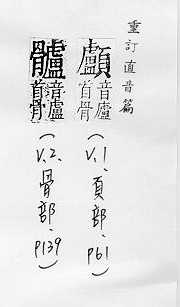 重訂直音篇
顱
音廬
首骨
(V.1、頁部、P61)
髗
音廬
首骨
(V.2.骨部、P139)